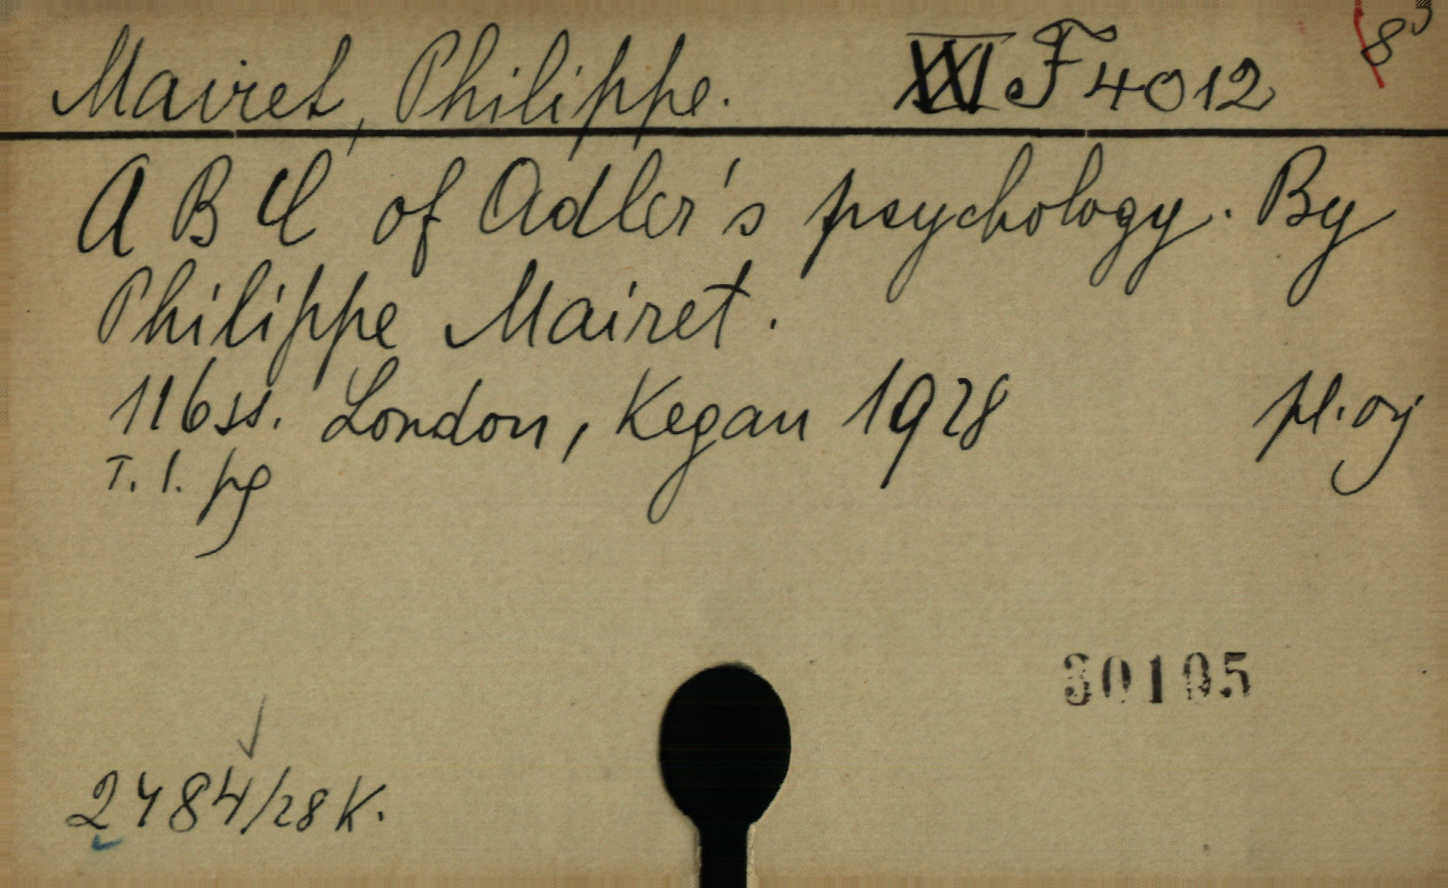 Mairet, Philippe. XXI F 4012 8°
A B C of Adler's psychology. By
Philippe Mairet.
116 ss. London, Kegan 1928 pl. oj
T. l. pg
30105
2484/28 K.